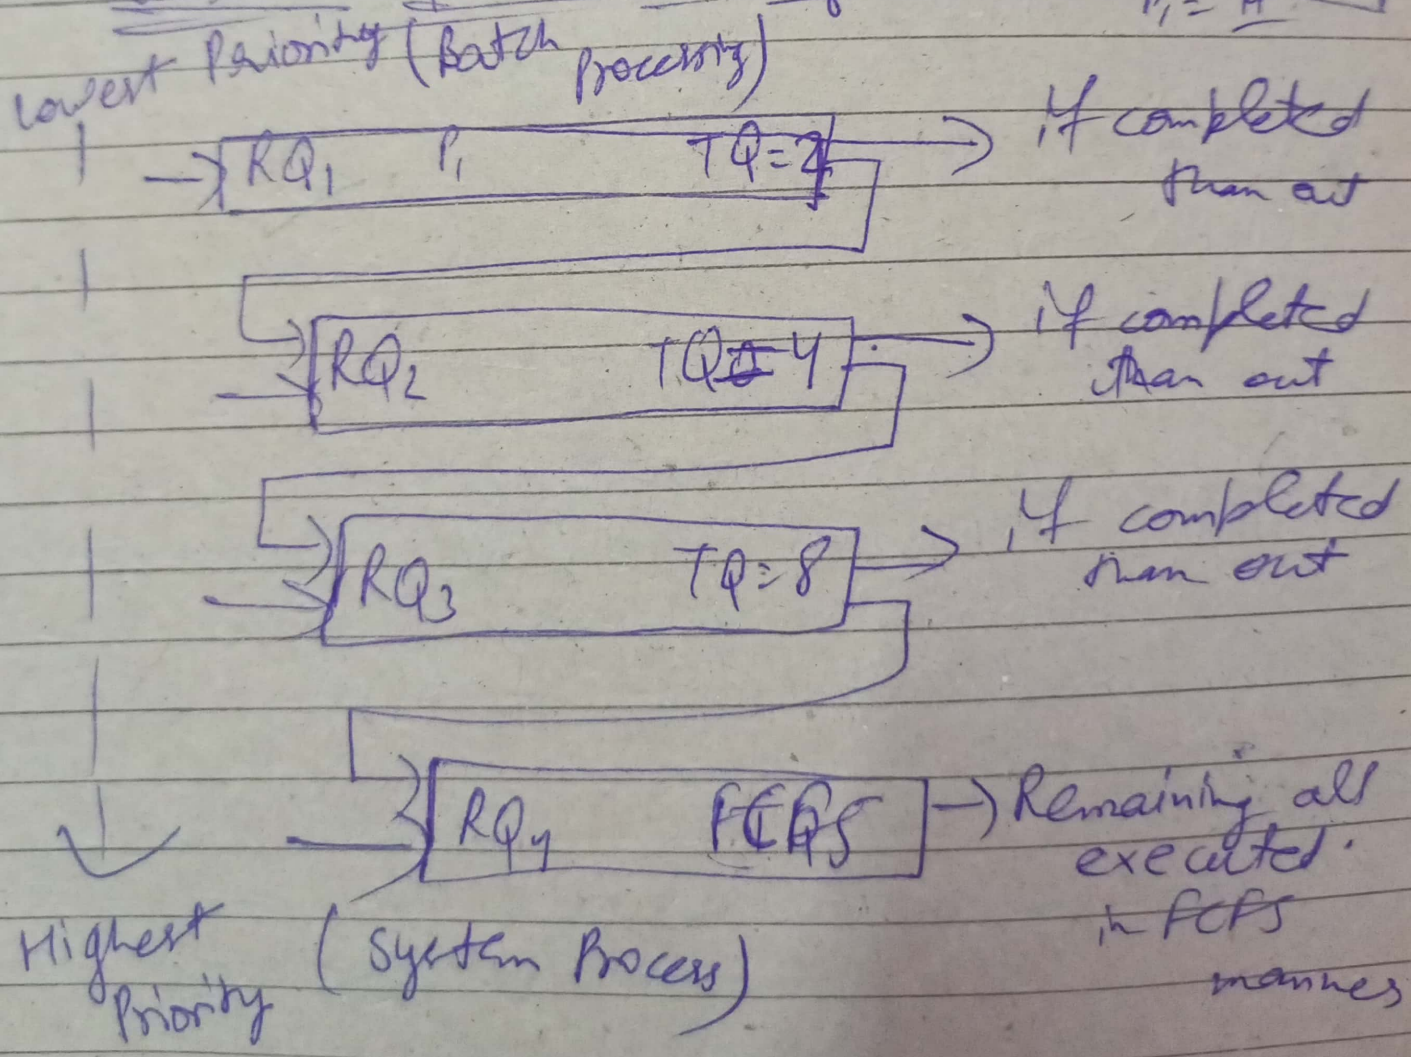 P1 = A
Lowest Priority (Batch Processing)
RQ1 P1 TQ=2
if completed
than out
RQ2 TQ=4
if completed
than out
RQ3 TQ=8
if completed
than out
RQ4 FCFS
Remaining all
executed.
in FCFS
manner
Highest Priority (System Process)